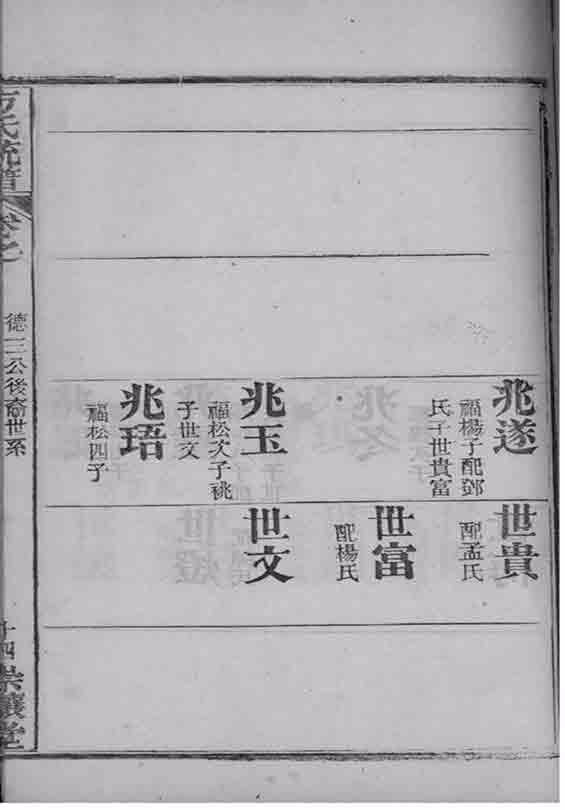 兆遂
福楊子配鄧
氏子世貴富
兆玉
福松次子祧
子世文
兆珸
福松四子
世貴
配孟氏
世富
配楊氏
世文
方氏統譜
卷之
德三公後裔世系
十四
崇讓堂